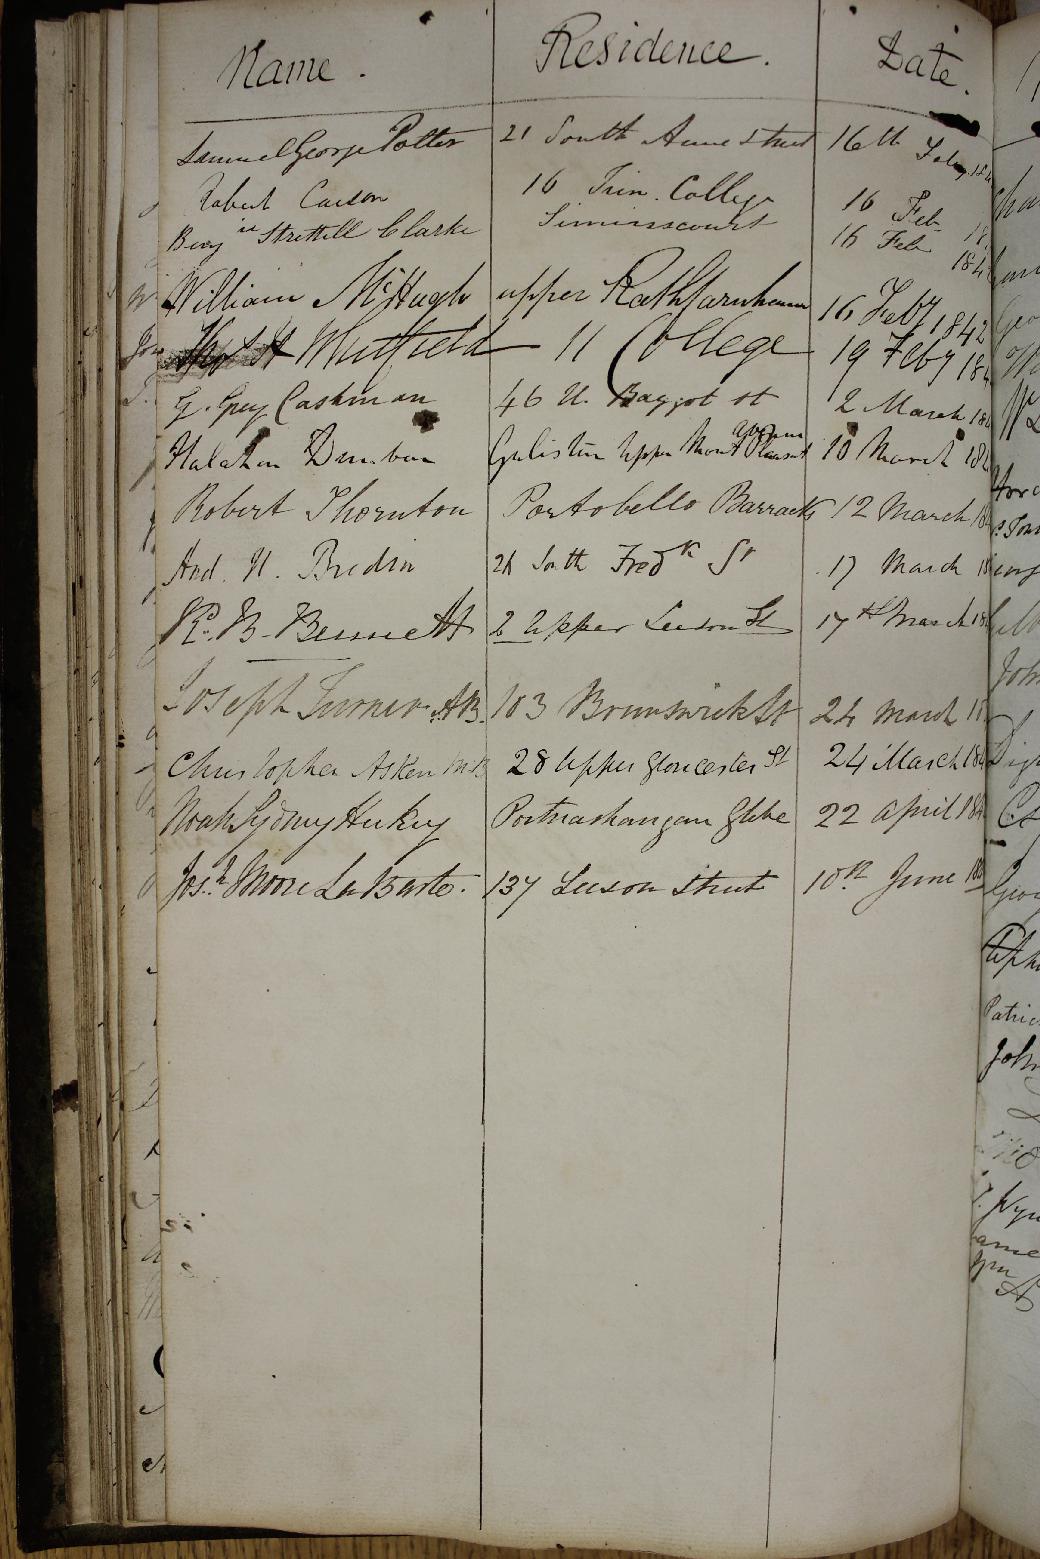 Name. Residence. Date.
Samuel George Potter 21 South Anne Street 16th Feby 184
Robert Carson 16 Trin. College 16 Feb 18
Benj in Strettell Clarke Simmonscourt 16 Feb 184
William McHugh upper Rathfarnham 16 Feby 1842
Thos H Mutfield 11 College 19 Feby 184
G. Grey Cashman 46 U. Baggot st 2 March 184
Halahan Dunbar Gulistan Upper Mount Pleasant Avenue 10 March 184
Robert Thornton Portobello Barracks 12 March 18
And. N. Bredin 21 South Fredk St 17 March 18
R. B. Bennett 2 Upper Leeson St 17th March 18
Joseph Turner AB. 103 Brunswick St 24 March 18
Christopher Asken M.B 28 Upper Gloucester St 24 March 184
Noah Sydney Hickey Portnashangan Glebe 22 April 184
Josh Moore LaBarte. 137 Leeson Street 10th June 18